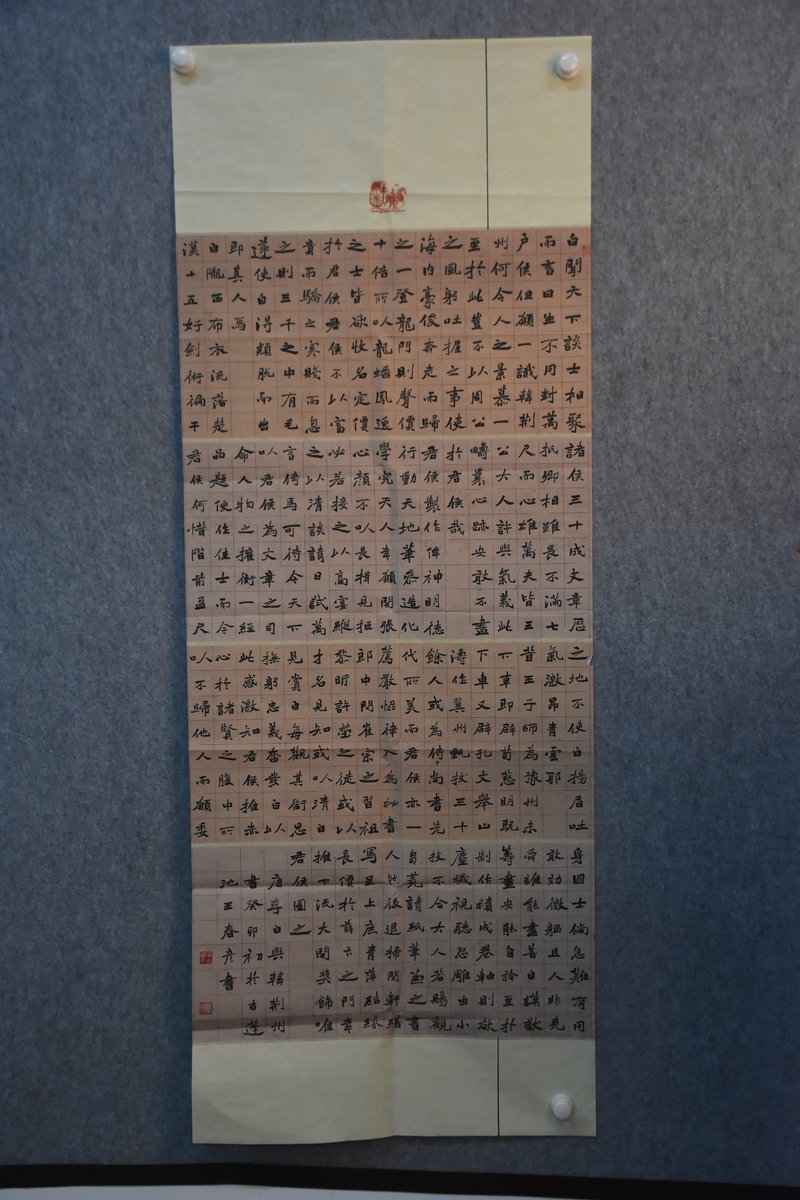 白聞天下談士相聚
而言曰生不用封萬
戶侯但願一識韓荊
州何令人之景慕一
至於此豈不以周公
之風躬吐握之事使
海內豪俊奔走而歸
之一登龍門則聲價
十倍所以龍蟠鳳逸
之士皆欲收名定價
於君侯君侯不以富
貴而驕之寒賤而忽
之則三千之中有毛
遂使白得穎脫而出
即其人焉
白隴西布衣流落楚
漢十五好劍術徧干
諸侯三十成文章歷
抵卿相雖長不滿七
尺而心雄萬夫皆王
公大人許與氣義此
疇曩心跡安敢不盡
於君侯哉
君侯製作侔神明德
行動天地筆參造化
學究天人幸願開張
心顏不以長揖見拒
必若接之以高宴縱
之以清談請日試萬
言倚馬可待今天下
以君侯為文章之司
命人物之權衡一經
品題便作佳士而今
君侯何惜階前盈尺
之地不使白揚眉吐
氣激昂青雲耶
昔王子師為豫州未
下車即辟荀慈明既
下車又辟孔文舉山
濤作冀州甄拔三十
餘人或為侍尚書先
代所美而君侯亦一
薦嚴協律入為祕書
郎中間崔宗之習祖
黎昕許瑩之徒或以
才名見知或以清白
見賞白每觀其銜恩
撫躬忠義奮發白以
此感激知君侯推赤
心於諸賢之腹中所
以不歸他人而願委
身國士倘急難有用
敢効微軀且人非堯
舜誰能盡善白謨猷
籌畫安能自矜至於
制作積成卷軸則欲
塵穢視聽恐雕虫小
技不合大人若賜觀
芻蕘請紙筆兼之書
人然後退掃閒軒繕
寫呈上庶青萍結綠
長價於薛卞之門幸
推下流大開獎飾唯
君侯圖之
唐李白與韓荊州
書癸卯初於古蓮
池王春彥書